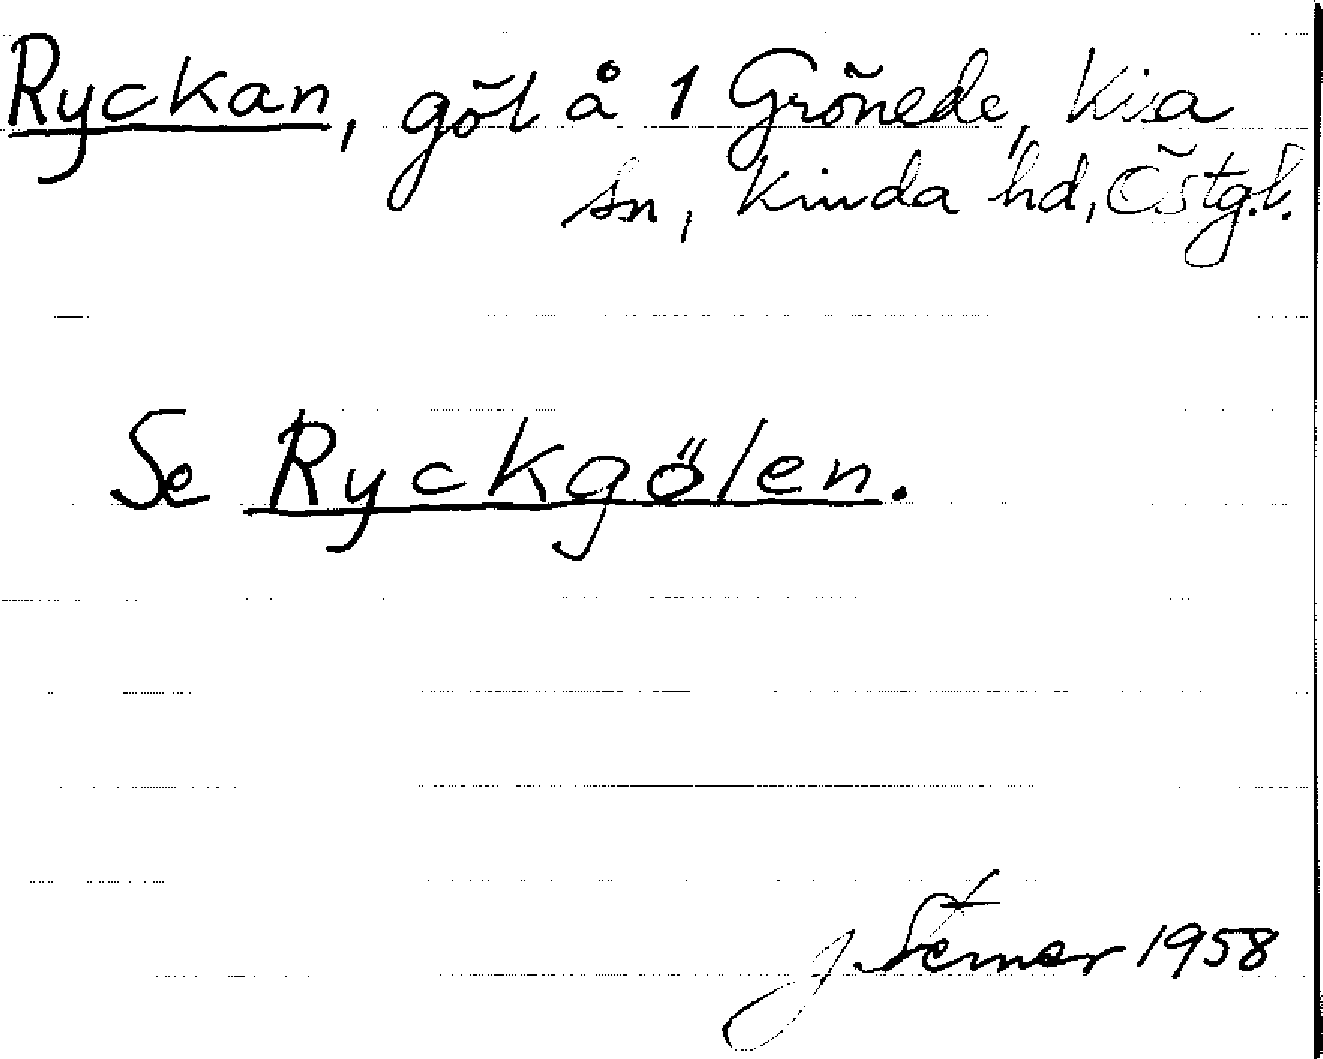 Ryckan, göl å 1 Grönede, Kisa
sn, Kinda hd, Östg.l.
Se Ryckgölen.
J. Sterner 1958